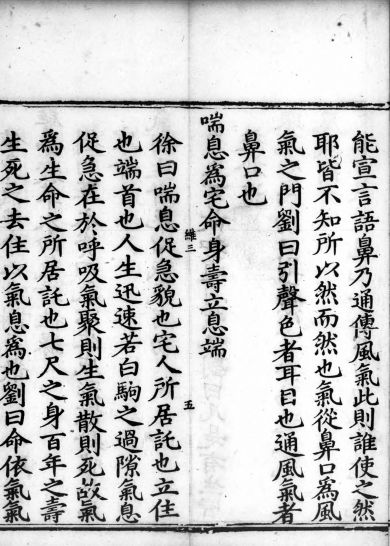 能宣言語鼻乃通傳風氣此則誰使之然
耶皆不知所以然而然也氣從鼻口爲風
氣之門劉曰引聲色者耳目也通風氣者
鼻口也
喘息爲宅命身壽立息端
維三
五
徐曰喘息促急貌也宅人所居託也立住
也端首也人生迅速若白駒之過隙氣息
促急在於呼吸氣聚則生氣散則死故氣
爲生命之所居託也七尺之身百年之壽
生死之去住以氣息爲也劉曰命依氣氣